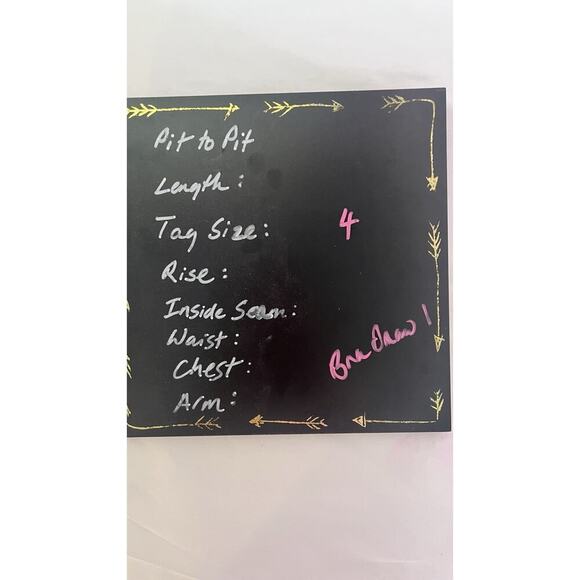 Pit to Pit
Length:
Tag Size: 4
Rise:
Inside Seam:
Waist:
Chest:
Arm: